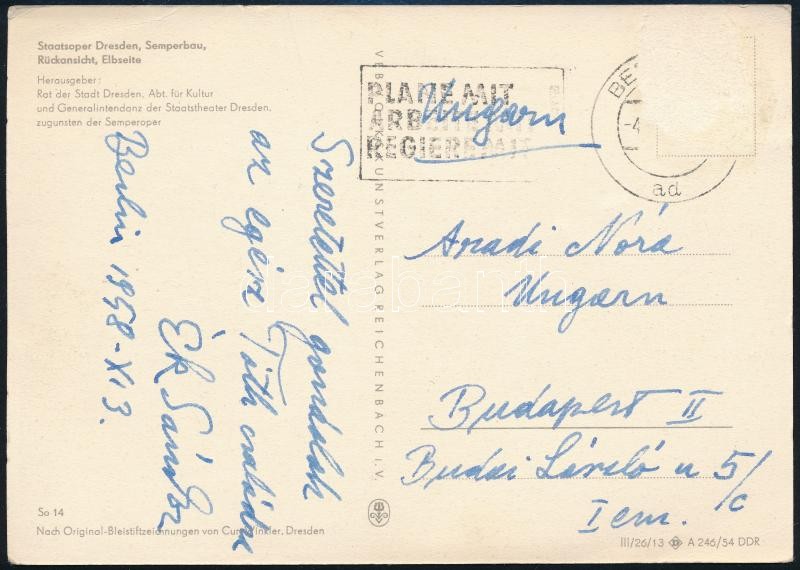 Staatsoper Dresden, Semperbau,
Rückansicht, Elbseite
Herausgeber:
Rat der Stadt Dresden, Abt. für Kultur
und Generalintendanz der Staatstheater Dresden,
zugunsten der Semperoper
Szeretettel gondolok
az egész Tóth családra
Ék Sándor
Berlin 1958-XI 3.
So 14
Nach Original-Bleistiftzeichnungen von Curt Winkler, Dresden
VEB VOLKSKUNSTVERLAG REICHENBACH I. V.
PLANE MIT
ARBEITE MIT
REGIERE MIT
Ungarn
BE
-4
ad
Aradi Nóra
Ungarn
Budapest II
Budai László u 5/c
I em.
III/26/13 A 246/54 DDR
darabanth